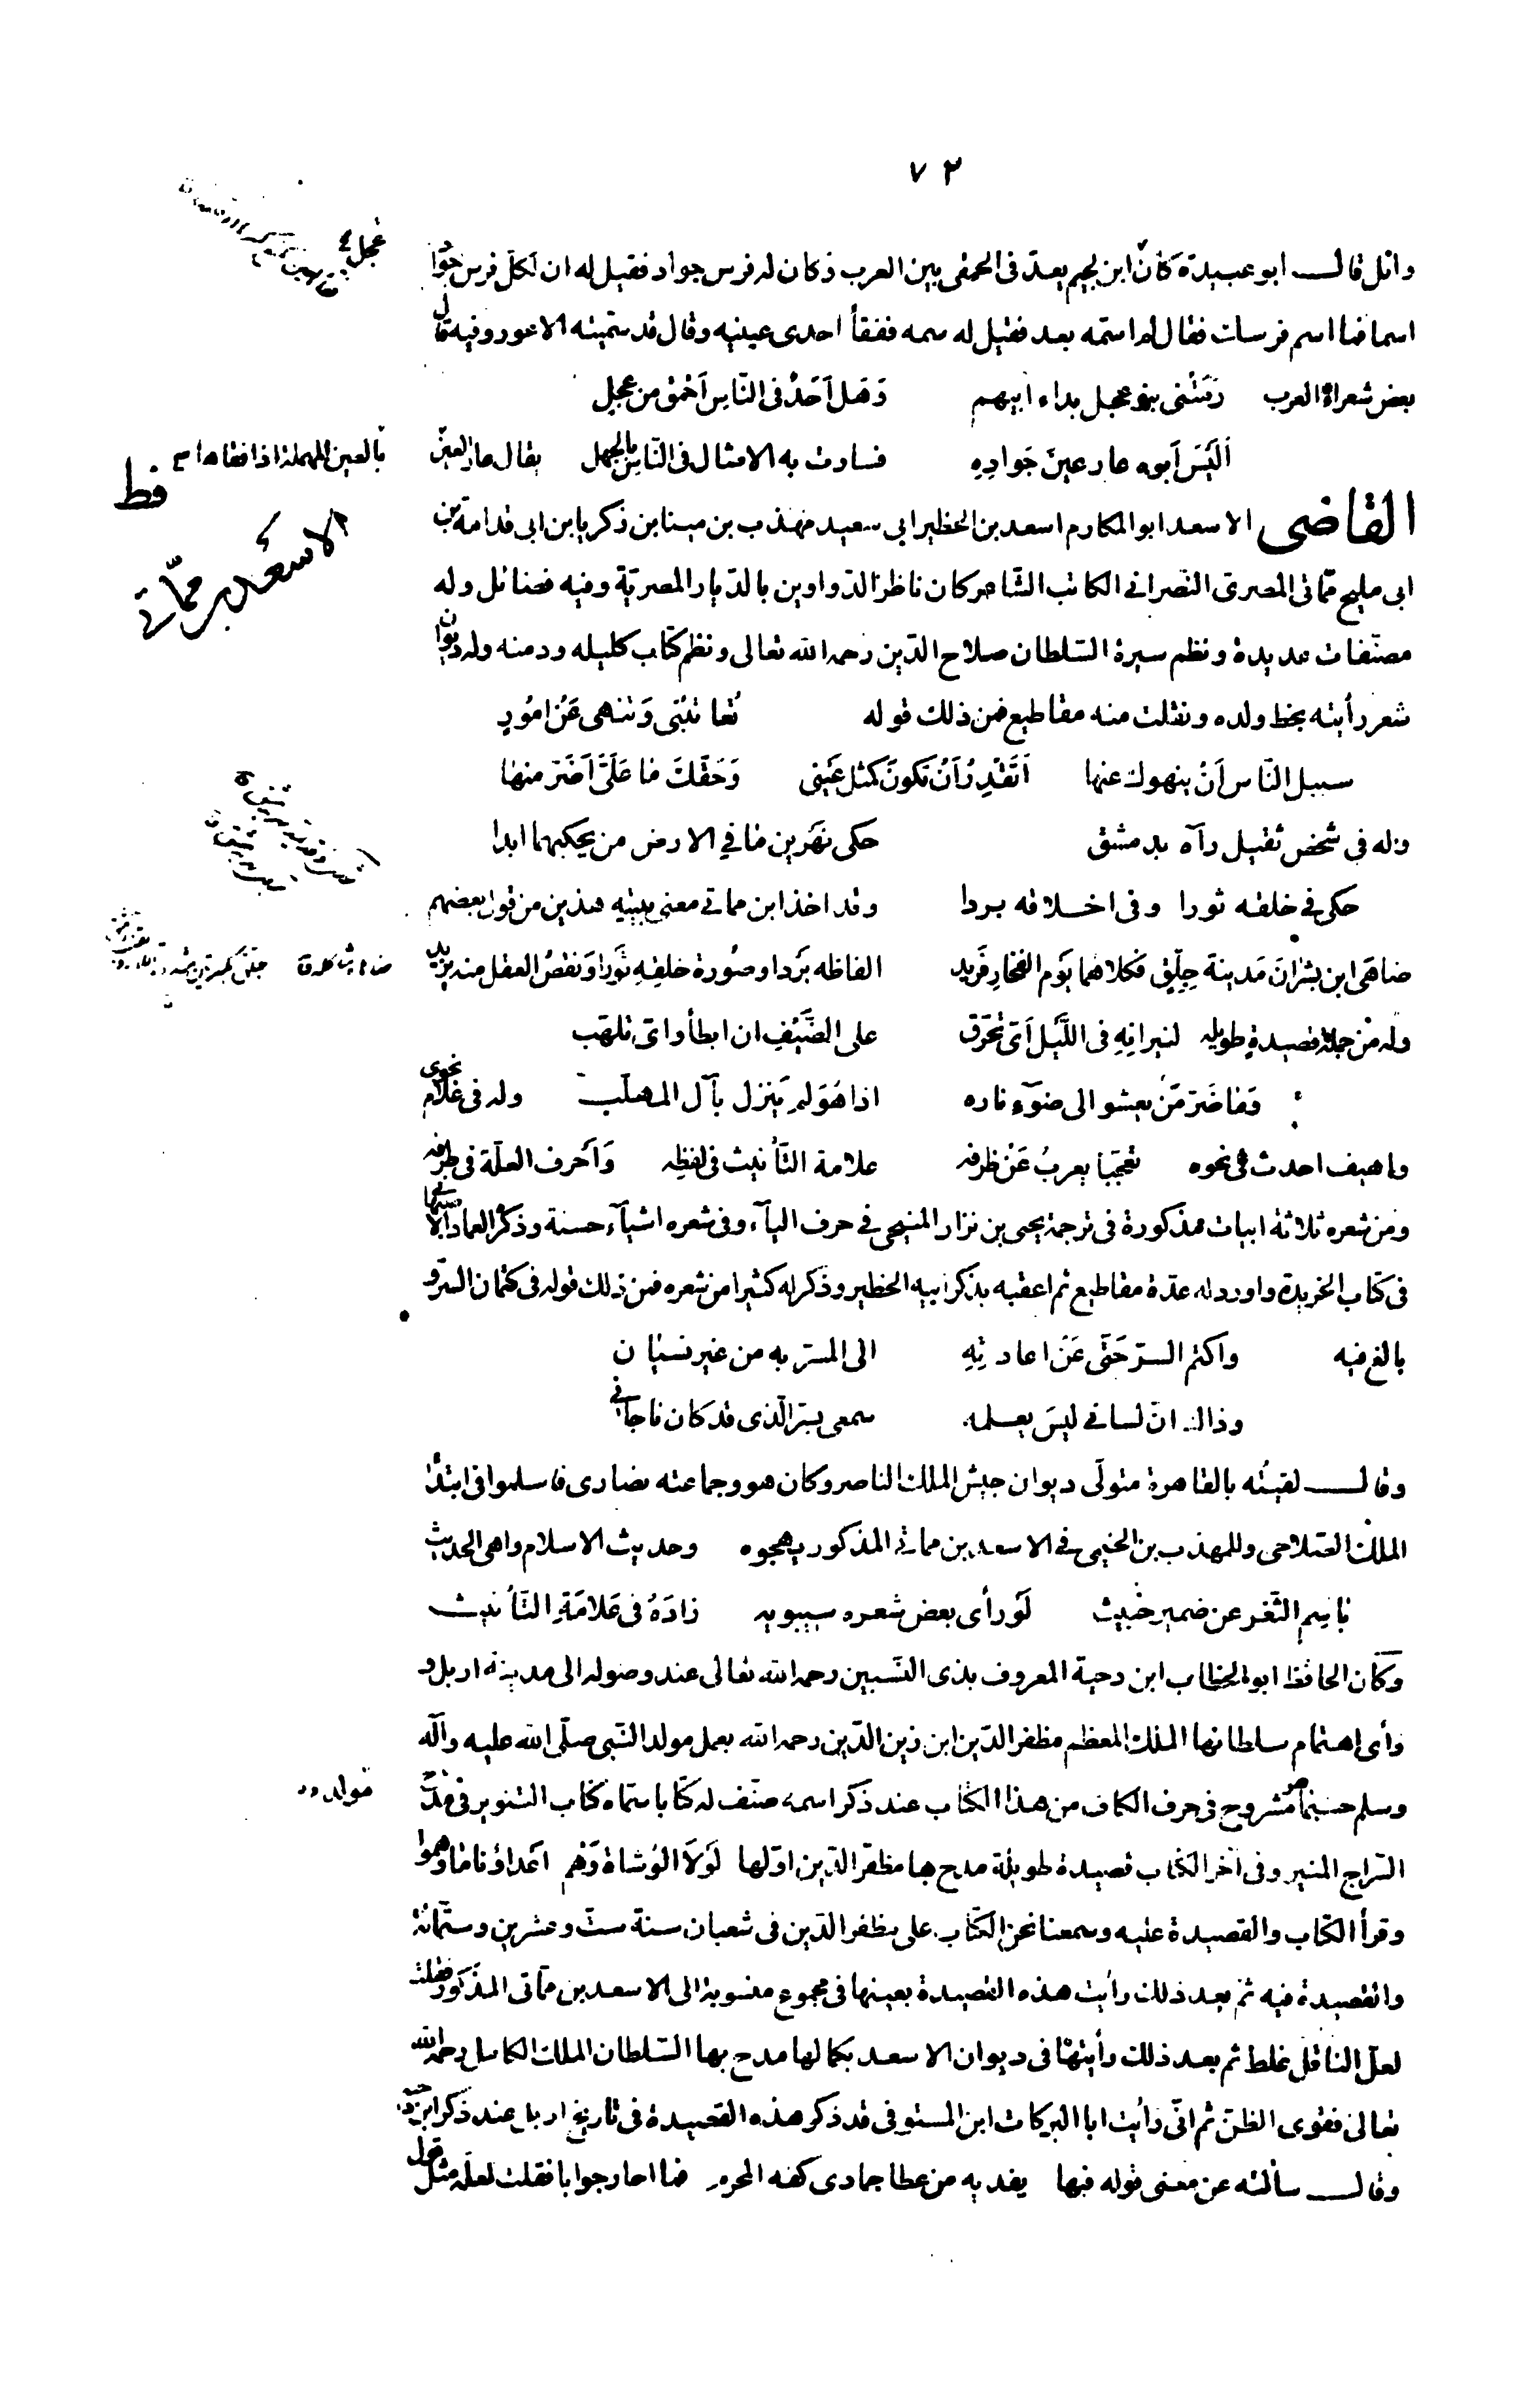 ٧٢
وائل قالـــ ابو عبيدة كان ابن لجيم يعدّ فى الحمقى بين العرب وكان له فرس جواد فقيل له ان لكلّ فرس جواد
اسما فما اسم فرسك فقال لم اسمّه بعد فقيل له سمه ففقأ احدى عينيه وقال قد سمّيته الاعور وفيه قال
بعض شعراء العرب رَمَتْنى بنو عجل بداء ابيهم وَهَل اَحَدٌ فى النّاس اَحْمق من عجل
اَلَيْسَ اَبوهم عار عينَ جَوادِهِ فسارت به الامثال فى النّاس بالجهل يقال عار العين
بالعين المهملة اذا فقأها
القاضى الاسعد ابو المكارم اسعد بن الخطير ابى سعيد مهذب بن مينا بن زكريا بن ابى قدامة بن
الاسعد بن ممّاتى
ابى مليح ممّاتى المصرى النّصرانى الكاتب الشّاعر كان ناظر الدّواوين بالدّيار المصريّة وفيه فضائل وله
مصنّفات عديدة ونظم سيرة السّلطان صلاح الدّين رحمه الله تعالى ونظم كتاب كليله ودمنه وله ديوان
شعر رأيته بخط ولده ونقلت منه مقاطيع فمن ذلك قوله تُعاتبُنى وَتنهى عَنْ امُورٍ
سبيل النّاس اَنْ ينهوك عنها اَتَقْدِرُ اَنْ تكونَ كمثل عَيْنى وَحَقّكَ مٰا عَلَىَّ اَضَرّ منها
وله فى شخص ثقيل رآه بدمشق حكى نهرين مٰا فى الارض من يحكيهما ابدا
حكى فى خلقه ثورا وفى اخلاقه بردا وقد اخذ ابن مماتى معنى بيتيه هذين من قول بعضهم
ضاهى ابن بشران مَدينة جِلِّقٍ فَكلاهُما يَوم الفخار فَريد الفاظه بَردا وصُورة خلقِهِ ثَورا وَنقصُ العقل منه يزيد
وله من جملة قصيدةٍ طويله لنيرانِهِ فى اللَّيْل اَىّ تحَرّق على الضَّيْفِ ان ابطأ واىّ تلهّب
وَمٰا ضَرّ مَنْ يعشو الى ضوَء ناره اذا هُوَ لم يَنزل بآل المهلّب وله فى غلام نحوى
واهيف احدث لى نحوه تعجّبا يعربُ عَنْ ظرفه علامة التّأنيث فى لفظِهِ وَاَحرف العلّة فى طرفه
ومن شعره ثلاثة ابيات مذكورة فى ترجمة يحيى بن نزار المنبجى فى حرف اليآء وفى شعره اشيآء حسنة وذكره العماد الاصبهانى
فى كتاب الخريدة واورد له عدّة مقاطيع ثم اعقبه بذكر ابيه الخطير وذكر له كثيرا من شعره فمن ذلك قوله فى كتمان السرّ و
بالغ فيه واكتم السرّ حَتّى عَنْ اعادتِهِ الى المسرّ به من غير نسيان
وذاك انّ لسانى ليسَ يعلمه سمعى بسرّ الّذى قد كان ناجانى
وقالـــ لقيتُه بالقاهرة متولّى ديوان جيش الملك الناصر وكان هو وجماعته نصارى فاسلموا فى ابتدآء
الملك الصّلاحى وللمهذب بن الخيمى فى الاسعد بن مماتى المذكور يهجوه وحديث الاسلام واهى الحديث
باسِم الثّغر عن ضمير خبيث لَوْ رأى بعض شعره سيبويه زادَهُ فى عَلامَةِ التّأنيث
وَكان الحافظ ابو الخطاب ابن دحية المعروف بذى النّسبين رحمه الله تعالى عند وصوله الى مدينة اربل و
رأى اهتمام سلطانها الملك المعظم مظفر الدّين ابن زين الدّين رحمه الله بعمل مولد النّبى صلّى الله عليه وآله
وسلم حسبما مشروح فى حرف الكاف من هذا الكتاب عند ذكر اسمه صنّف له كتابا سمّاه كتاب التّنوير فى مدح
السّراج المنير وفى آخر الكتاب قصيدة طويلة مدح بها مظفّر الدّين اوّلها لَوْلَا الوُشاة وَهُم اَعْداؤنا مٰا وهموا
وقرأ الكتاب والقصيدة عليه وسمعنا نحن الكتاب على مظفر الدّين فى شعبان سنة ستّ وعشرين وستّمائة
والقصيدة فيه ثم بعد ذلك رأيت هذه القصيدة بعينها فى مجموع منسوبة الى الاسعد بن ممّاتى المذكور فقلت
لعلّ الناقل غلط ثم بعد ذلك رأيتها فى ديوان الاسعد بكمالها مدح بها السّلطان الملك الكامل رحمه الله
تعالى فقوى الظنّ ثم انّى رأيت ابا البركات ابن المستوفى قد ذكر هذه القصيدة فى تاريخ اربل عند ذكر ابن دحية
وقالـــ سألته عن معنى قوله فيها يفديه من عطا جمادى كفه المحرم فما احار جوابا فقلت لعلّه مثل قول